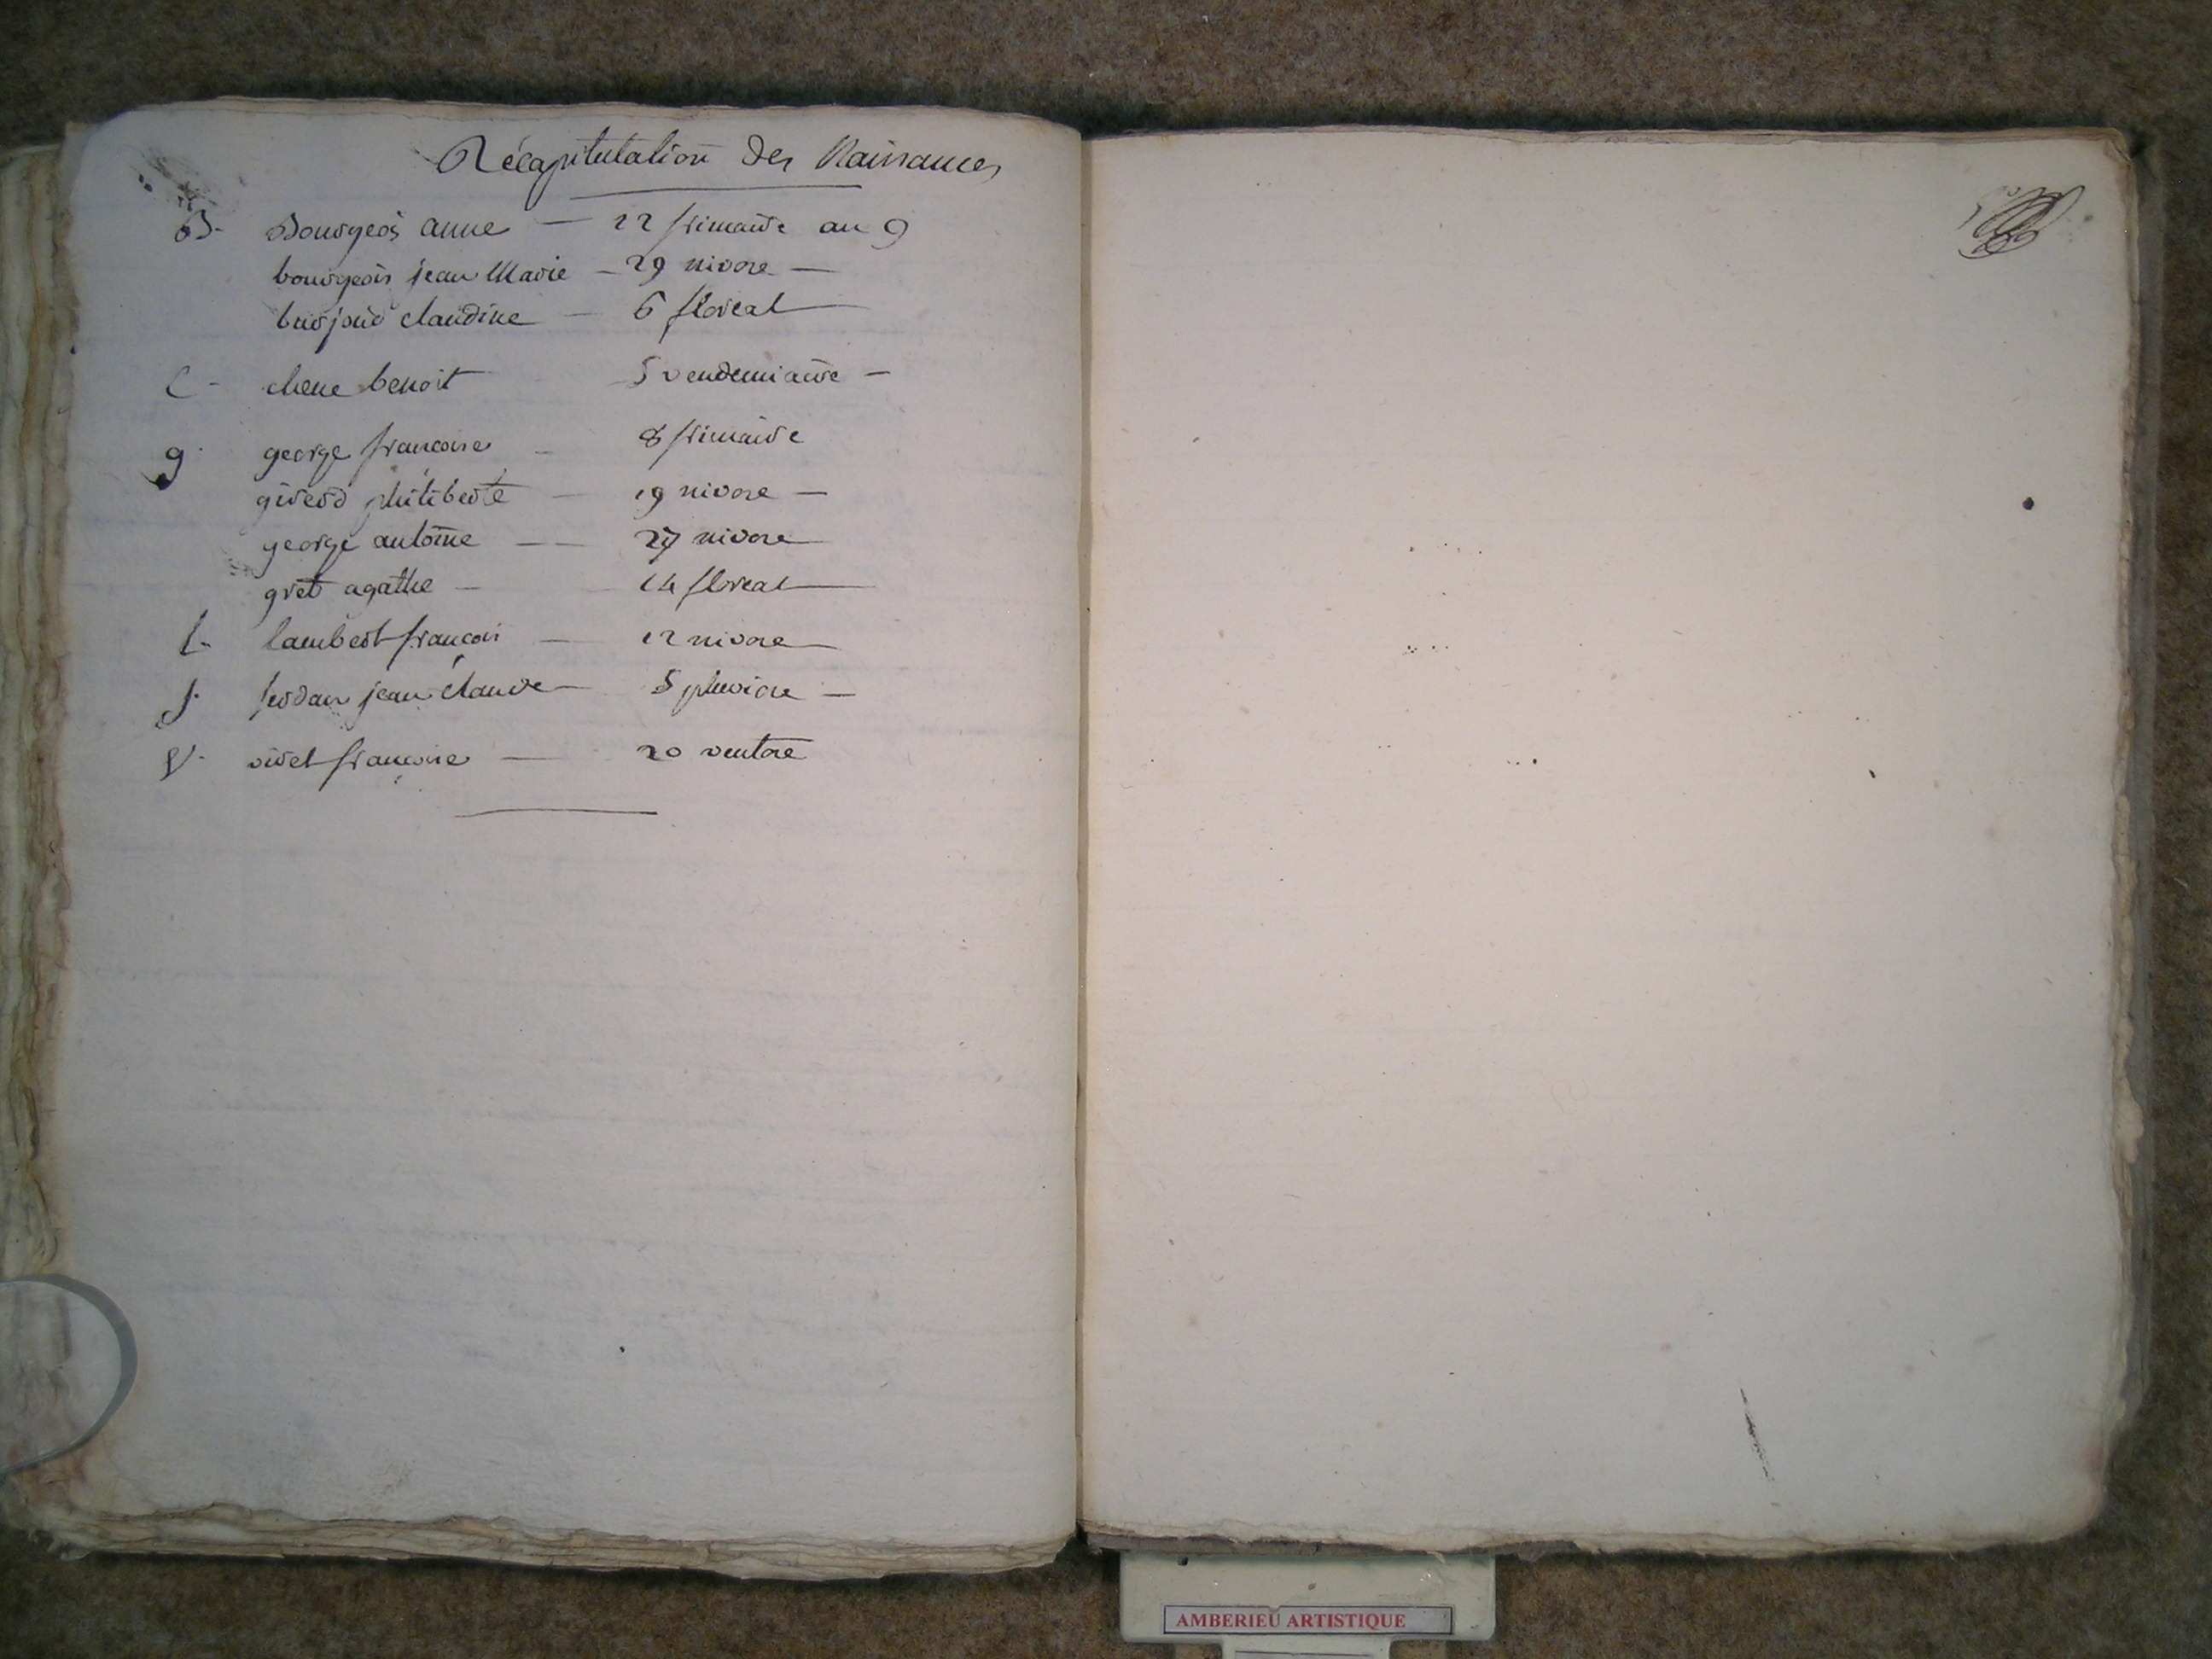 Récapitulation des Naissances
B. Bourgeois anne — 22 frimaire an 9
bourgeois jean Marie — 29 nivose —
burjoud claudine — 6 floreal —
C - chene benoit 5 vendemiaire —
g. george francoise — 8 frimaire
girerd philiberte — 19 nivose —
george antoine — — 27 nivose
gret agathe — 14 floreal —
L. lambert francois — 12 nivose —
J. Jordan jean claude — 5 pluviose —
V. viret francoise — 20 ventose
AMBERIEU ARTISTIQUE